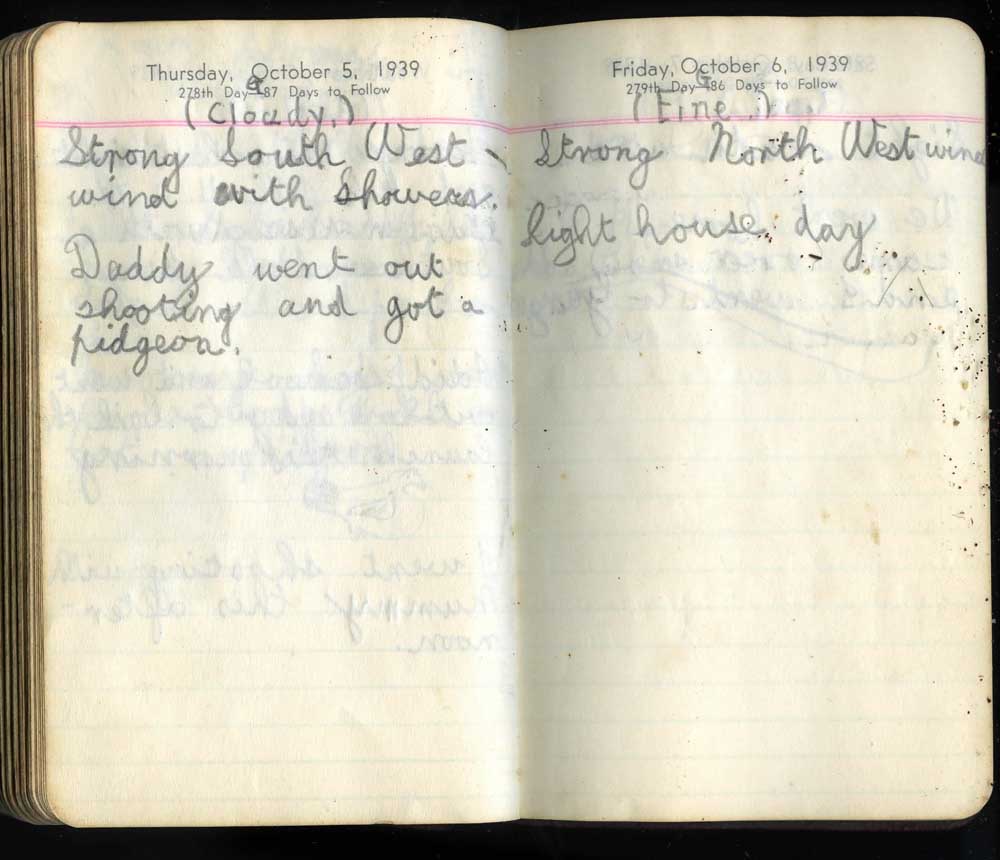 Thursday, October 5, 1939
278th Day 87 Days to Follow
(Cloudy.)
Strong South West
wind with showers.
Daddy went out
shooting and got a
pidgeon.
Friday, October 6, 1939
279th Day 86 Days to Follow
(Fine.)
Strong North West wind
light house day